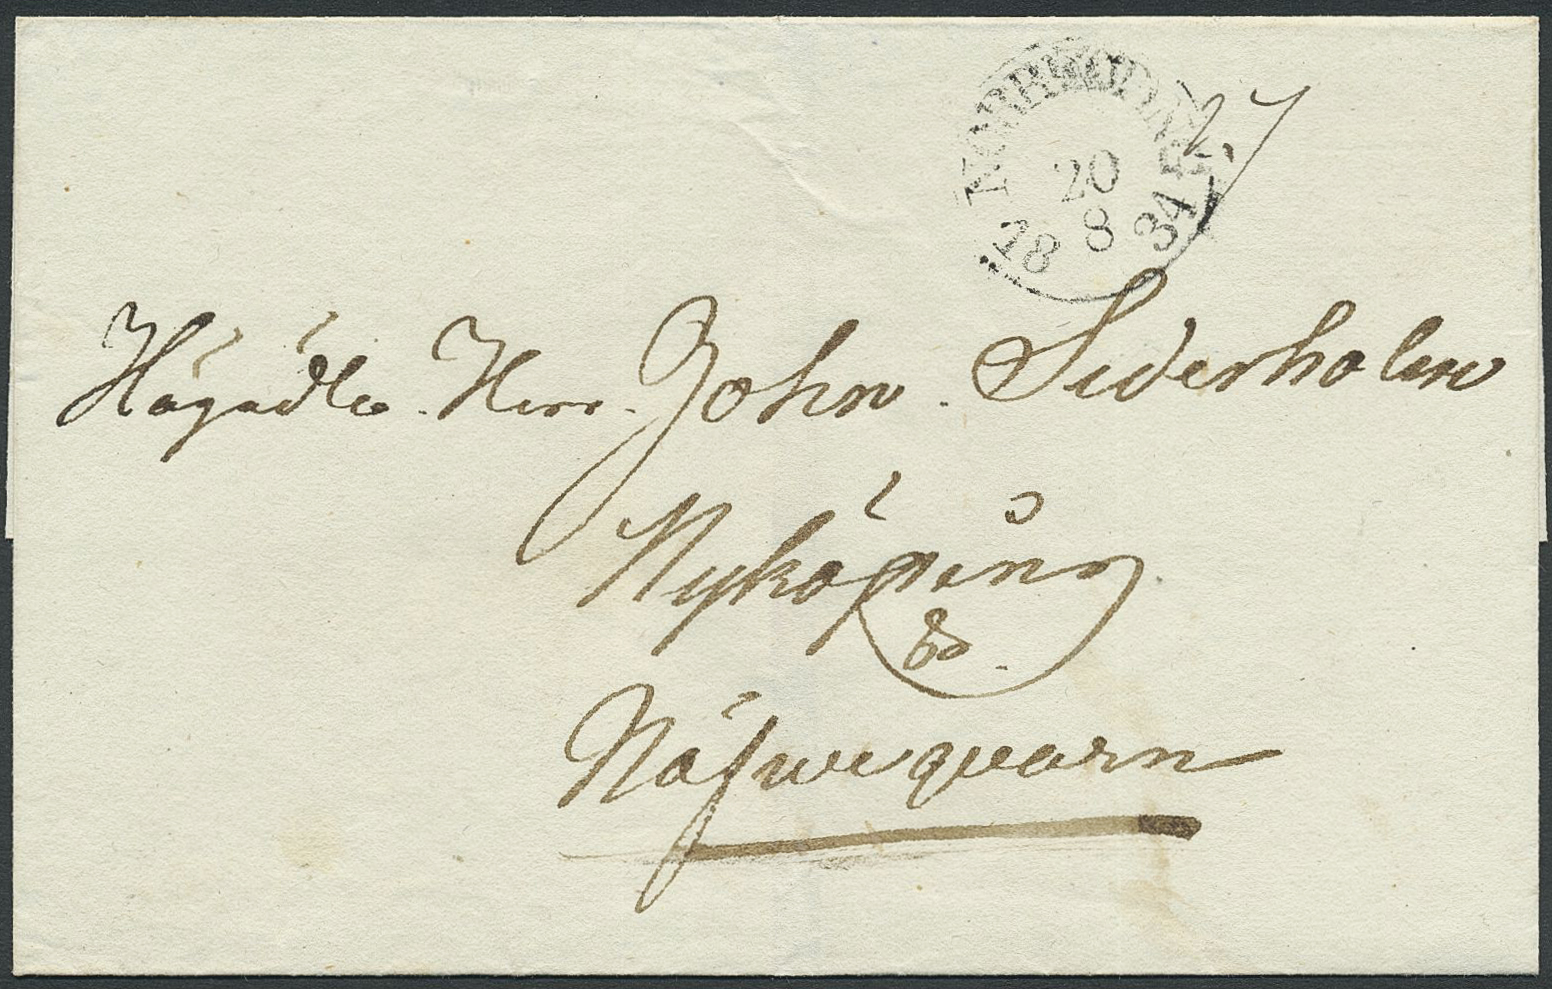 NORRKÖPING
20
8
18 34
27
Högädle Herr John Sederholm
Nyköping
&
Näfvequarn